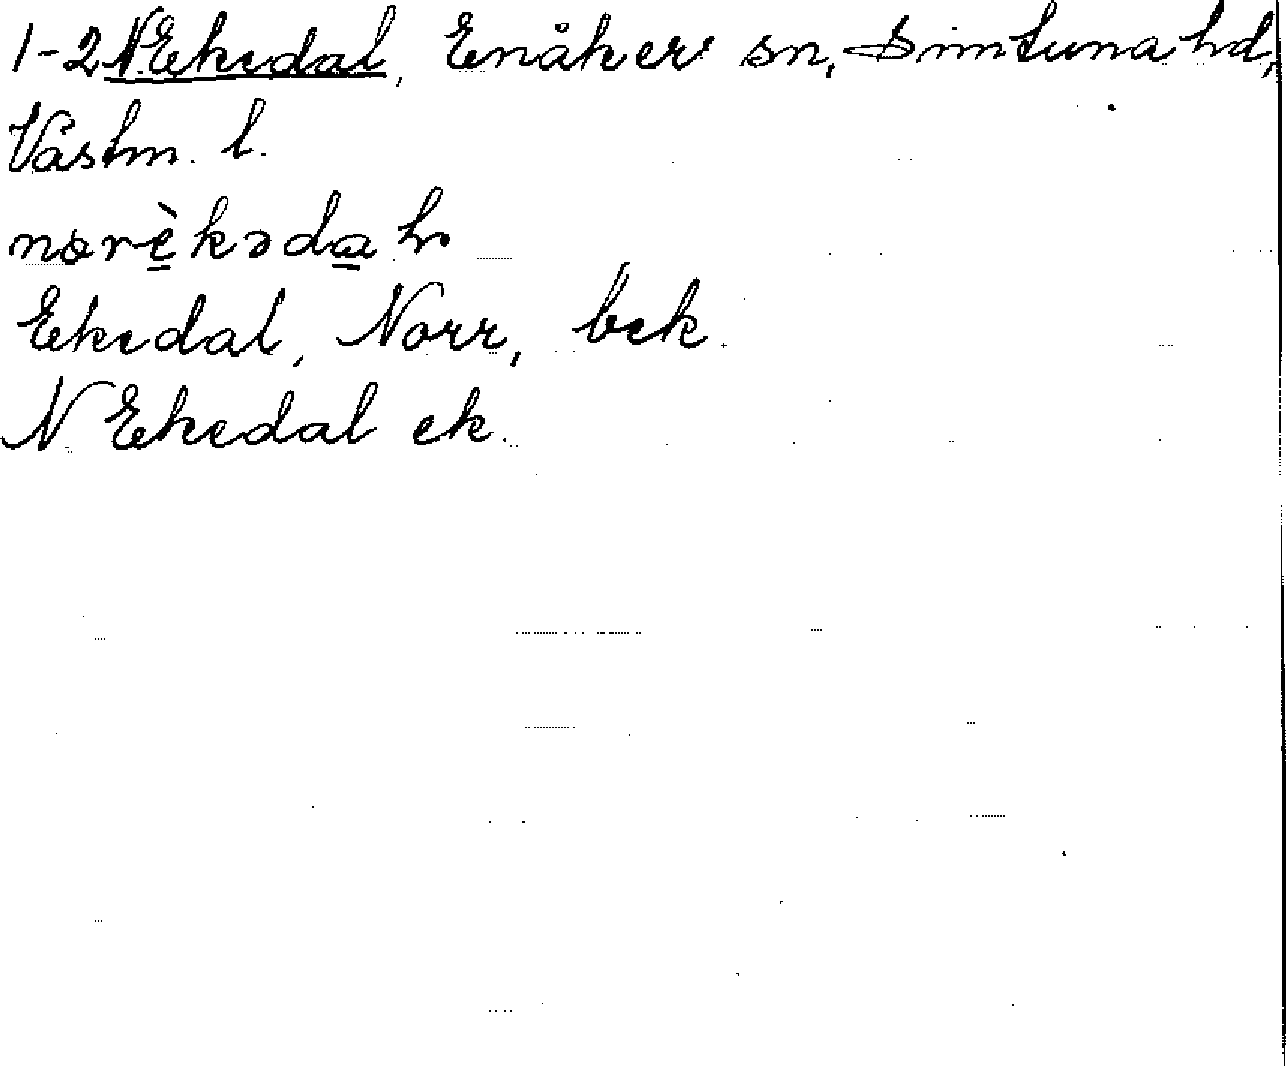 1-2 N. Ekedal, Enåker sn, Simtuna hd,
Västm. l.
norèkədaɫ
Ekedal, Norr, bek.
N Ekedal ek.